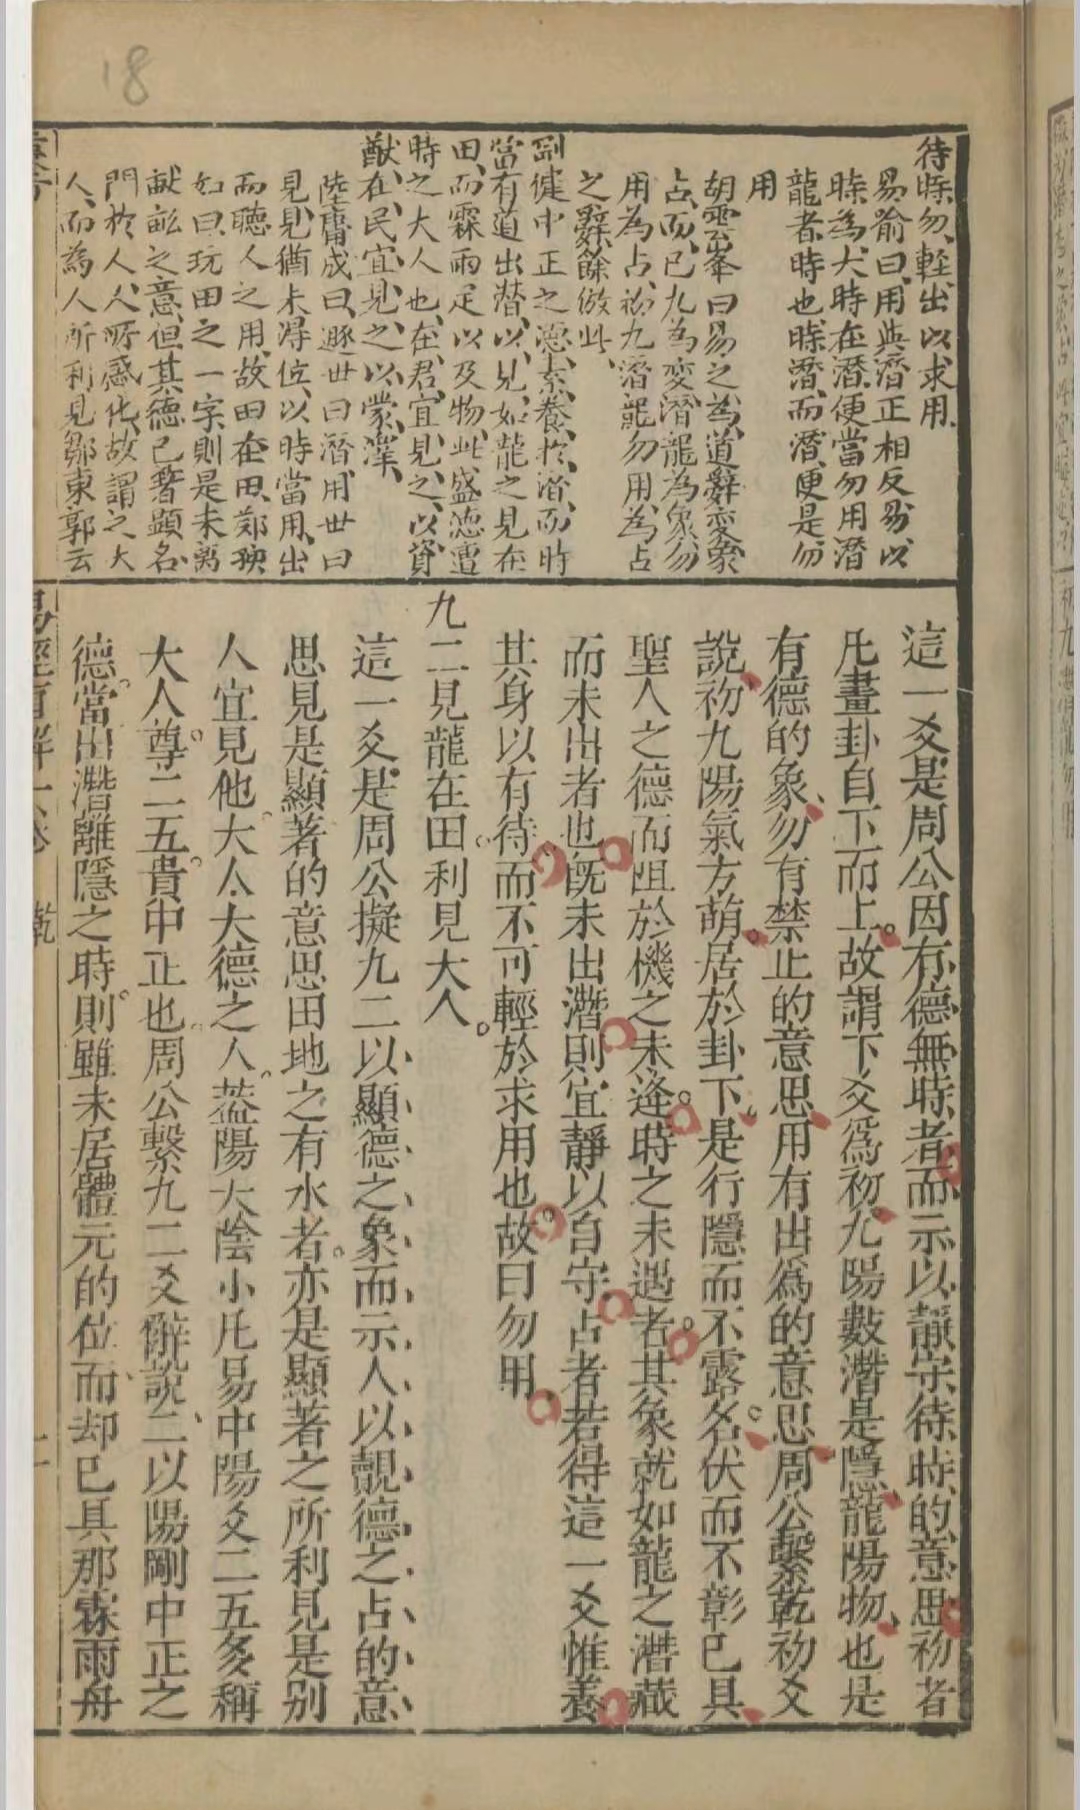 18
待時勿輕出以求用
易喻曰用與濟正相反易以
時為大時在潛便當勿用潛
龍者時也時潛而潛便是勿
用
胡雲峯曰易之為道辭變象
占而已九為變潛龍為象勿
用為占初九潛龍勿用為占
之辭餘倣此
剛健中正之德素養於潛而時
當有道出潛以見如龍之見在
田而霖雨足以及物此盛德遭
時之大人也在君宜見之以資
猷在民宜見之以蒙澤
陸庸成曰遯世曰潛用世曰
見見猶未得位以時當用出
而聽人之用故田在田
如曰玩田之一字則是未離
畎畝之意但其德已著顯名
門於人人所感化故謂之大
人而為人所利見鄒東郭云
這一爻是周公因有德無時者而示以靜守待時的意思初者
凡畫卦自下而上故謂下爻爲初九陽數潛是隱龍陽物也是
有德的象勿有禁止的意思用有出爲的意思周公繫乾初爻
說初九陽氣方萌居於卦下是行隱而不露名伏而不彰已具
聖人之德而阻於機之未逢時之未遇者其象就如龍之潛藏
而未出者也旣未出潛則宜靜以自守占者若得這一爻惟養
其身以有待而不可輕於求用也故曰勿用
九二見龍在田利見大人
這一爻是周公擬九二以顯德之象而示人以覿德之占的意
思見是顯著的意思田地之有水者亦是顯著之所利見是别
人宜見他大人大德之人葢陽大陰小凡易中陽爻二五多稱
大人尊二五貴中正也周公繫九二爻辭說二以陽剛中正之
德當出潛離隱之時則雖未居體元的位而却已具那霖雨舟
易經
卷
乾
二